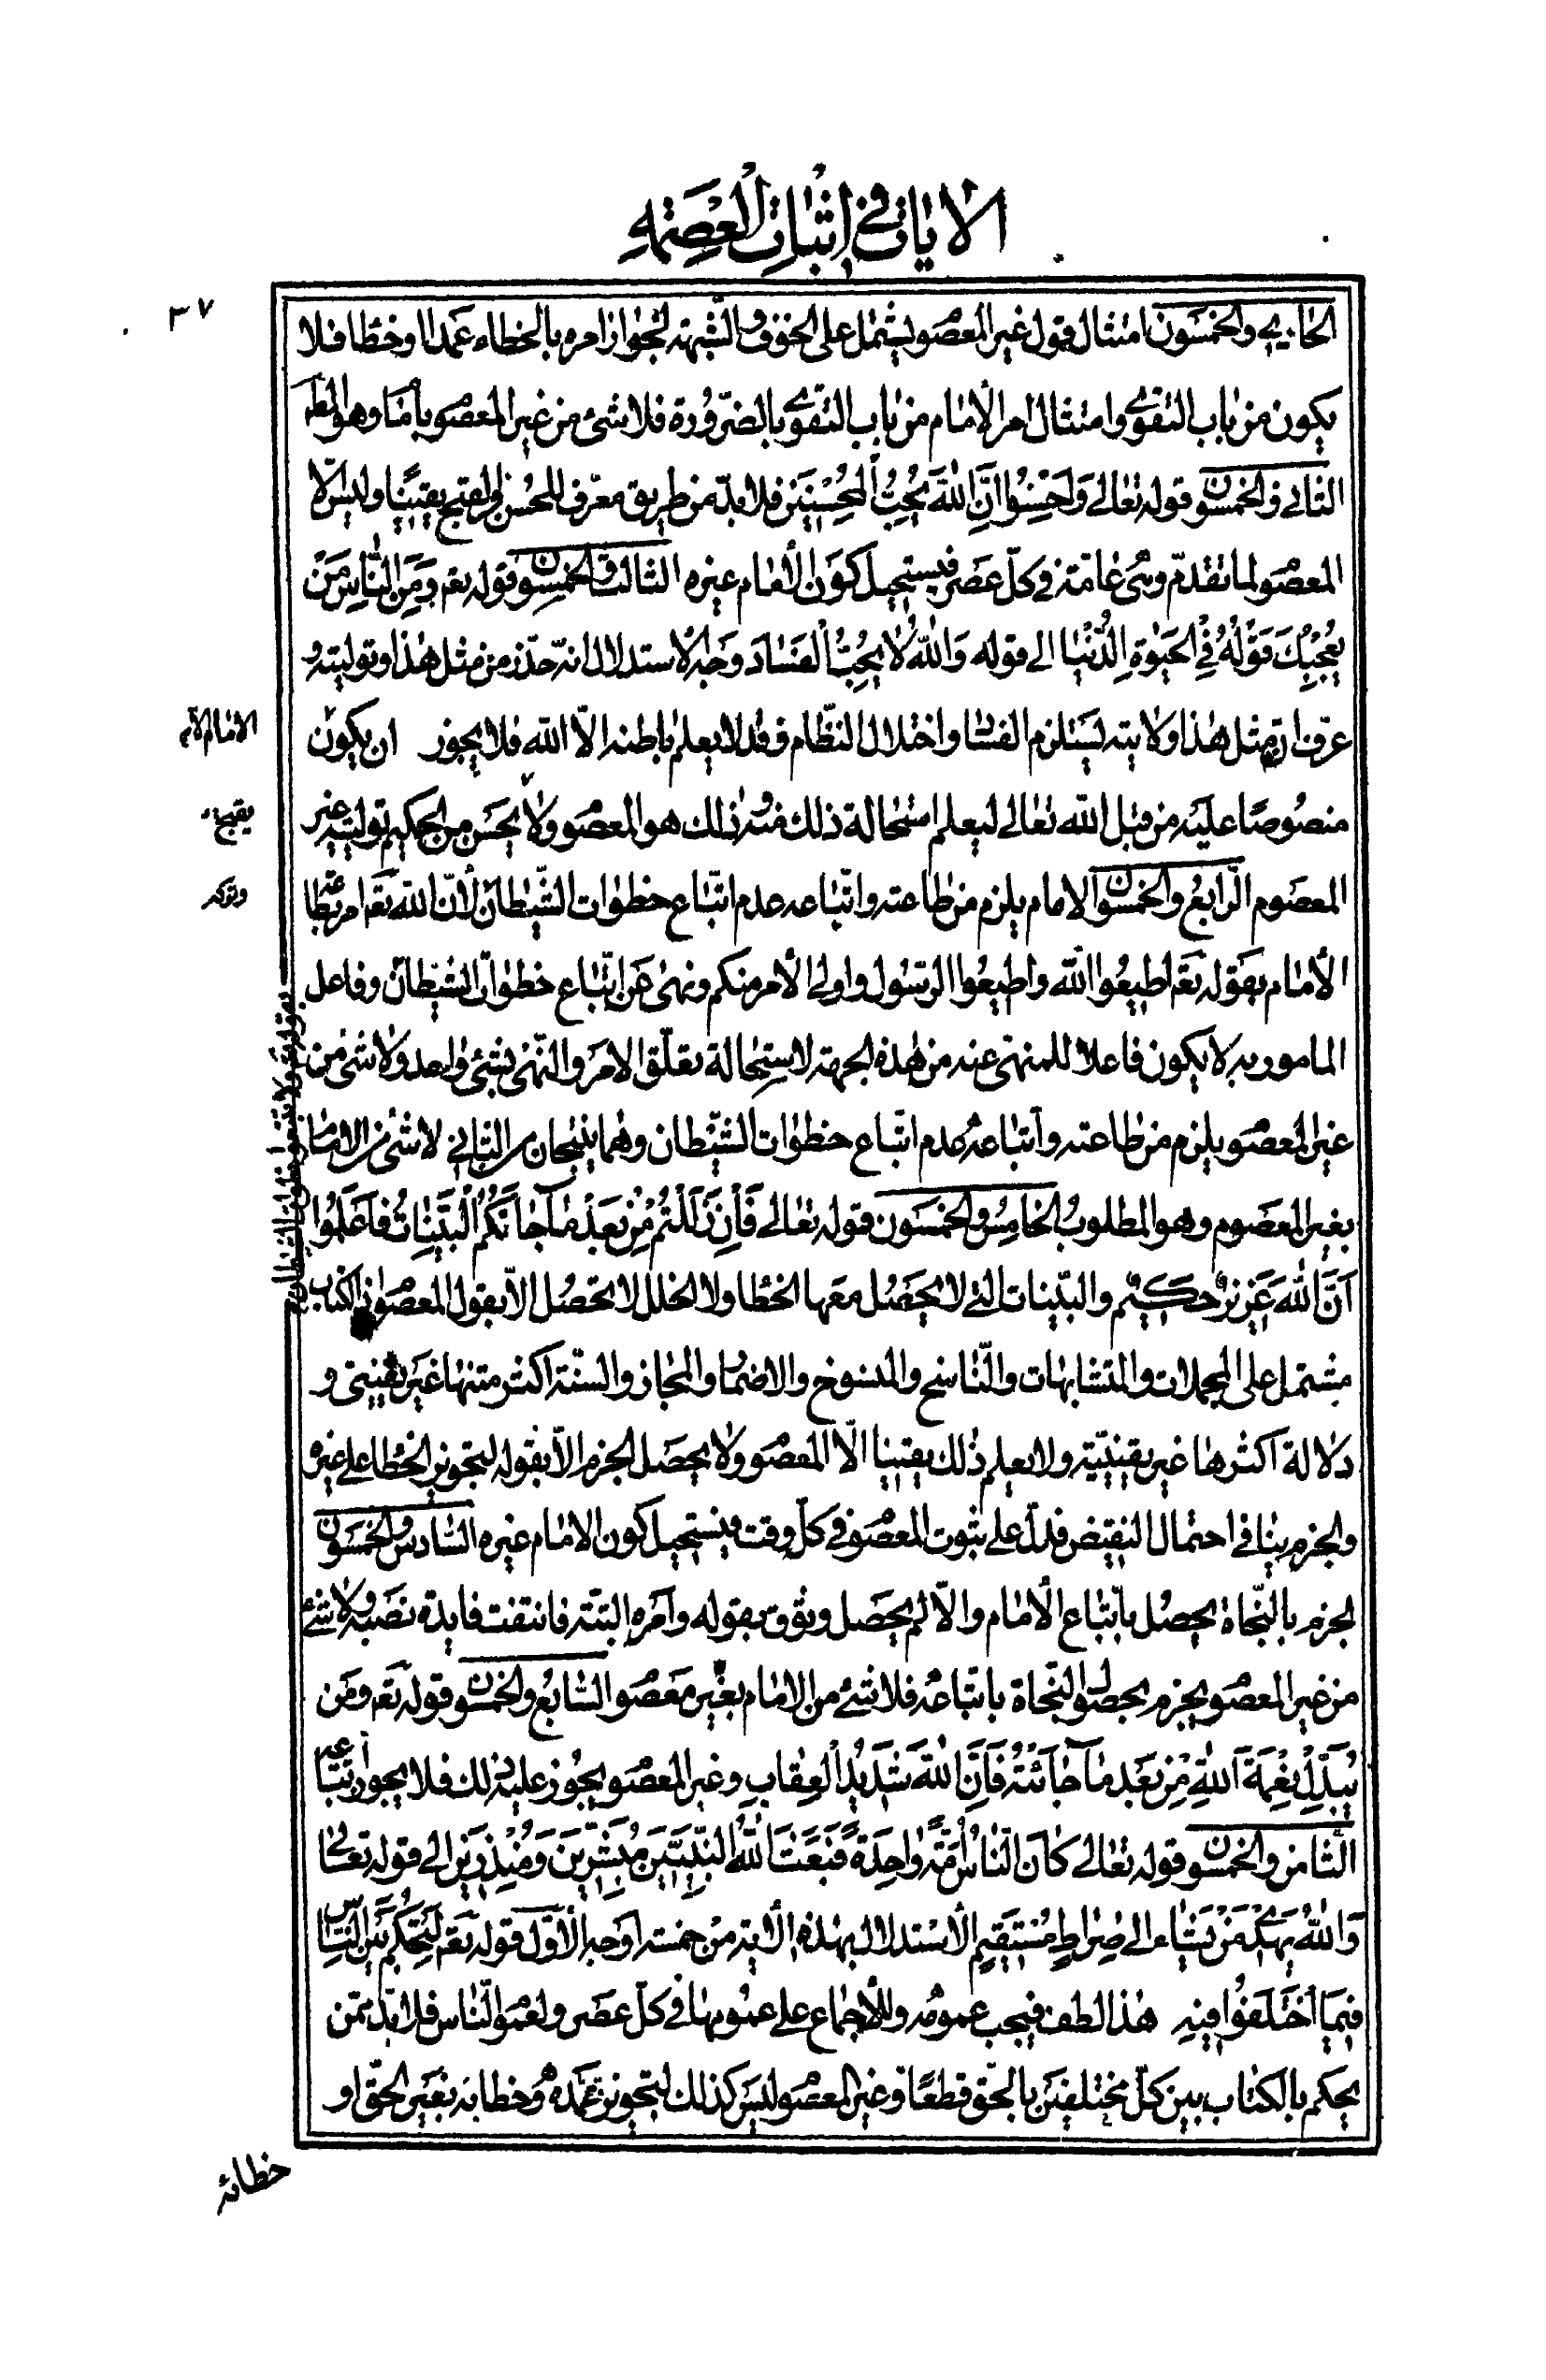 الايات في إثبات العصمة
٣٧
الحادي والخمسون امتثال قول غير المعصو يشتمل على الخوف والشبهة لجواز امره بالخطاء عمدا او خطا فلا
يكون من باب التقوى وامتثال امر الإمام من باب التقوى بالضرورة فلا شئ من غير المعصو بامام وهو المط
الثانى والخمسون قوله تعالى وَاَحْسِنُوا اِنَّ اللّٰهَ يُحِبُّ الْمُحْسِنِينَ فلا بدّ من طريق معرف للحسن والقبح يقينيا وليس الّا
المعصو لما تقدم وهى عامة في كل عصر فيستحيل كون الامام غيره الثالث والخمسون قوله تعم وَمِنَ النّاسِ مَنْ
يُعْجِبُكَ قَوْلُهُ فِي الْحَيٰوةِ الدُّنْيٰا الى قوله وَاللّٰهُ لٰا يُحِبُّ الْفَسٰادَ وجه الاستدلال انه حذر من مثل هذا وتوليته و
عرف ان مثل هذا ولايته يستلزم الفسا واختلال النظام وقد لا يعلم باطنه الّا اللّه فلا يجوز ان يكون
الامام الا
منصوصا عليه من قبل اللّه تعالى ليعلم استحالة ذلك منه وذلك هو المعصو ولا يحسن من الحكيم تولية غير
يقبح
المعصوم الرابع والخمسون الامام يلزم من طاعته واتباعه عدم اتباع خطوات الشيطان لأن اللّه تعم امر بطاعة
الأمام بقوله تعم اطيعوا اللّه واطيعوا الرسول واولى الأمر منكم ونهى عن اتباع خطوات الشيطان وفاعل
بقوله تعم ولا تتبعوا خطوات الشيطان
المامور به لا يكون فاعلا للمنهى عنه من هذه الجهة لاستحالة تعلق الامر والنهى بشئ واحد ولا شئ من
غير المعصو يلزم من طاعته واتباعه عدم اتباع خطوات الشيطان وهما ينتجان من الثانى لا شئ من الامام
بغير المعصوم وهو المطلوب الخامس والخمسون قوله تعالى فَاِنْ زَلَلْتُمْ مِنْ بَعْدِ مٰا جٰاءَتْكُمُ الْبَيِّنٰاتُ فَاعْلَمُوا
اَنَّ اللّٰهَ عَزِيزٌ حَكِيمٌ والبينات التى لا يحصل معها الخطا ولا الخلل لا تحصل الّا بقول المعصو اذ الكتاب
مشتمل على المجملات والمتشابهات والناسخ والمنسوخ والاضما والمجاز والسنة اكثر متنها غير يقينى و
دلالة اكثرها غير يقينية ولا يعلم ذلك يقينا الّا المعصو ولا يحصل الجزم الّا بقوله لتجويز الخطا على غيره
والجزم ينافى احتمال النقيض فدل على ثبوت المعصو في كل وقت فيستحيل كون الامام غيره السادس والخمسون
الجزم بالنجاة يحصل باتباع الأمام والّا لم يحصل وثوق بقوله وامره البتة فانتفت فايدة نصبه ولا شئ
من غير المعصو يجزم بحصول النجاة باتباعه فلا شئ من الامام بغير معصو السابع والخمسون قوله تعم ومن
يُبَدِّلْ نِعْمَةَ اللّٰهِ مِنْ بَعْدِ مٰا جٰاءَتْهُ فَاِنَّ اللّٰهَ شَدِيدُ الْعِقٰابِ وغير المعصو يجوز عليه ذلك فلا يجوز اتباعه
الثامن والخمسون قوله تعالى كٰانَ النّٰاسُ اُمَّةً وٰاحِدَةً فَبَعَثَ اللّٰهُ النَّبِيِّينَ مُبَشِّرِينَ وَمُنْذِرِينَ الى قوله تعالى
وَاللّٰهُ يَهْدِي مَنْ يَشٰاءُ الى صِرٰاطٍ مُسْتَقِيمٍ الاستدلال بهذه الاية من خمسة اوجه الأول قوله تعم لِيَحْكُمَ بَيْنَ النّٰاسِ
فِيمَا اخْتَلَفُوا فِيهِ هذا لطف فيجب عمومه وللاجماع على عمومها في كل عصر ولعمو الناس فلا بدّ ممن
يحكم بالكتاب بين كل مختلفين بالحق قطعا وغير المعصو ليس كذلك لتجويز تعمده وخطائه بغير الحق او
خطائه